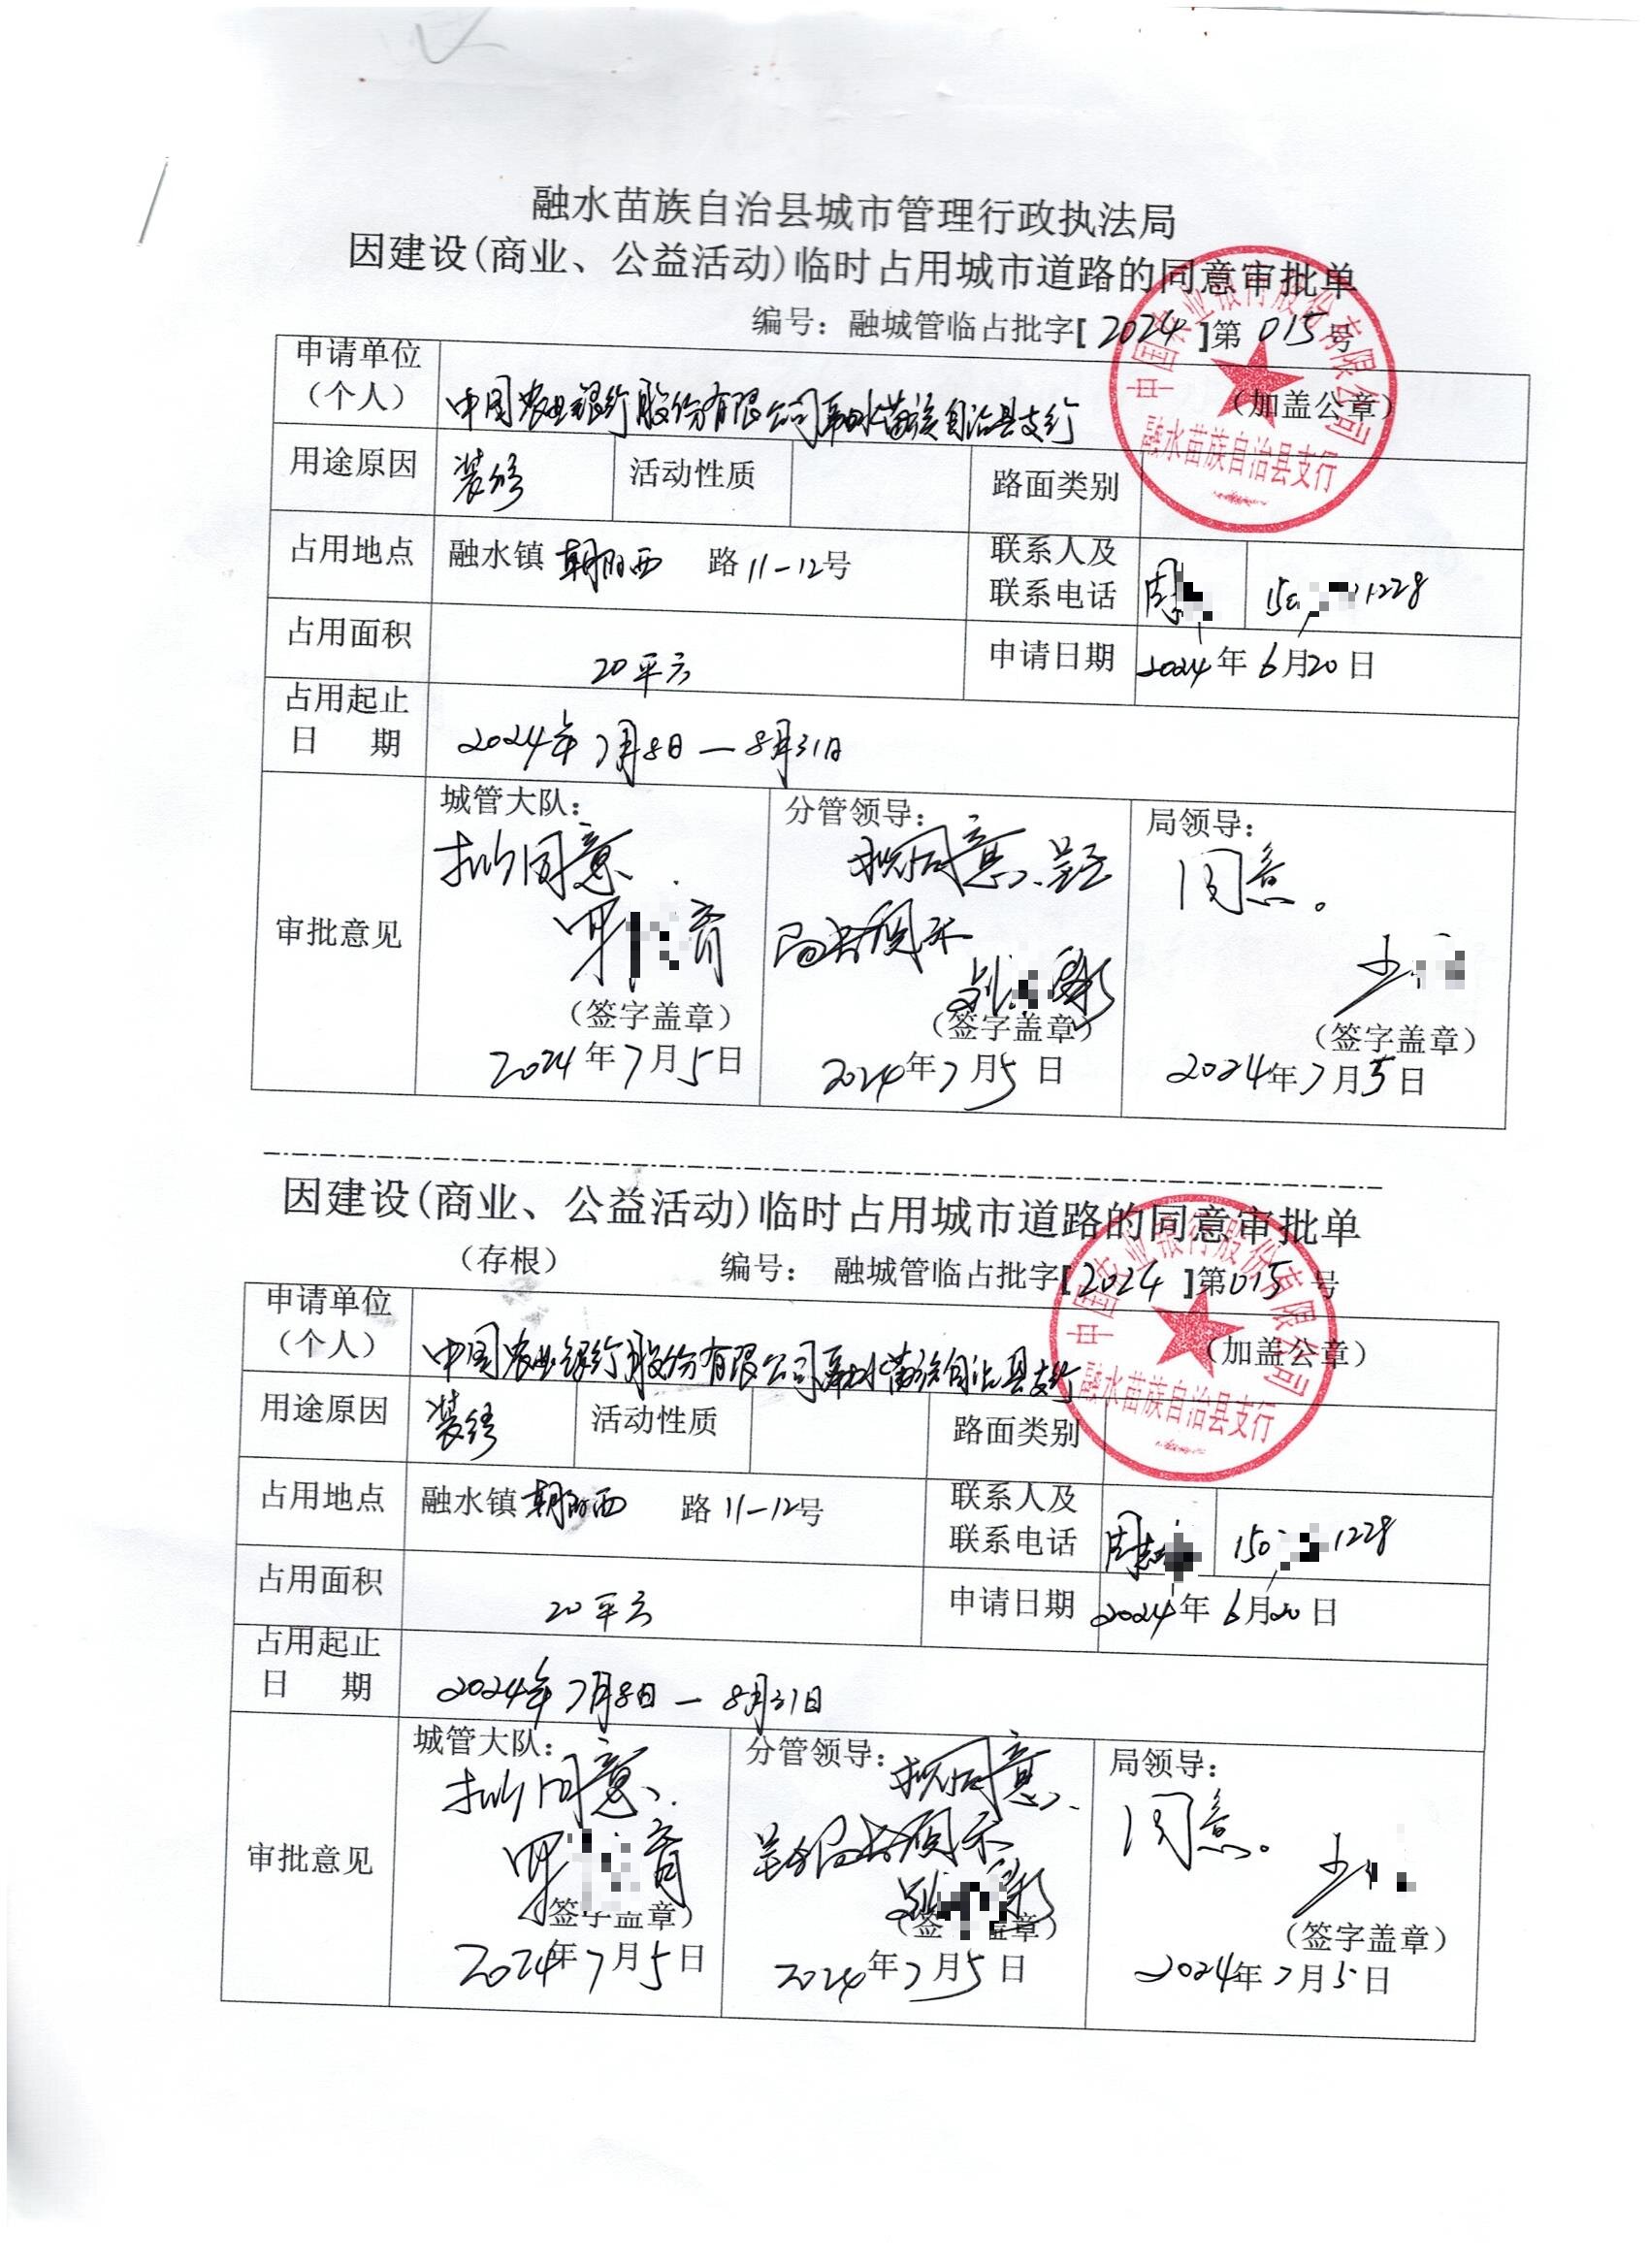 融水苗族自治县城市管理行政执法局
因建设(商业、公益活动)临时占用城市道路的同意审批单
编号：融城管临占批字[2024]第015号
申请单位（个人） 中国农业银行股份有限公司融水苗族自治县支行 （加盖公章）
中国农业银行股份有限公司
融水苗族自治县支行
用途原因 装修 活动性质 路面类别
占用地点 融水镇 朝阳西 路11-12号 联系人及联系电话 周 150 1228
占用面积 20平方 申请日期 2024年6月20日
占用起止日期 2024年7月8日—8月31日
审批意见
城管大队：
拟同意
（签字盖章）
2024年7月5日
分管领导：
拟同意、呈
局长预示
（签字盖章）
2024年7月5日
局领导：
同意。
（签字盖章）
2024年7月5日
因建设(商业、公益活动)临时占用城市道路的同意审批单
（存根） 编号： 融城管临占批字[2024]第015号
申请单位（个人） 中国农业银行股份有限公司融水苗族自治县支行 （加盖公章）
中国农业银行股份有限公司
融水苗族自治县支行
用途原因 装修 活动性质 路面类别
占用地点 融水镇 朝阳西 路11-12号 联系人及联系电话 周志 150 1228
占用面积 20平方 申请日期 2024年6月20日
占用起止日期 2024年7月8日—8月31日
审批意见
城管大队：
拟同意、
签字盖章）
2024年7月5日
分管领导：
拟同意、
呈 局长预示
（签 盖章）
2024年7月5日
局领导：
同意。
（签字盖章）
2024年7月5日